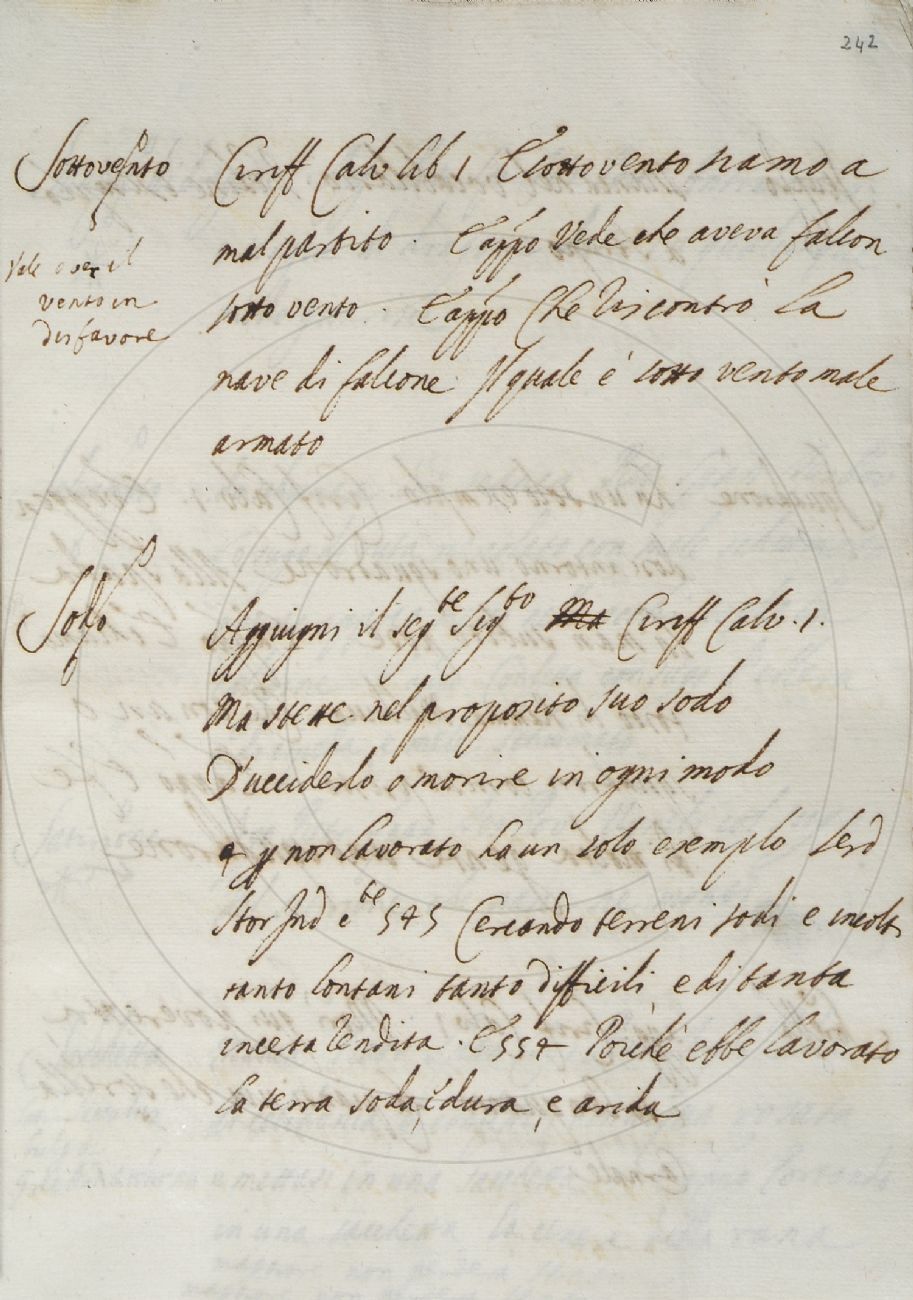 242
Sottovento
Vale aver il
vento in
disfavore
Ciriff Calv lib 1 E sotto vento siamo a
mal partito . E app.o Vede che aveva falcon
sotto vento . E app.o Che riscontrò la
nave di falcone Il quale è sotto vento male
armato
Sodo
Aggiugni il seg.te Sig.to Ciriff Calv. 1.
Ma stette nel proposito suo sodo
D'ucciderlo o morire in ogni modo
e p non lavorato ha un solo exemplo Serd
Stor Ind c.te 545 Cercando terreni sodi e incolti
tanto lontani tanto difficili, e di tanta
incerta rendita . E 554 Poichè ebbe lavorato
la terra soda, e dura, e arida